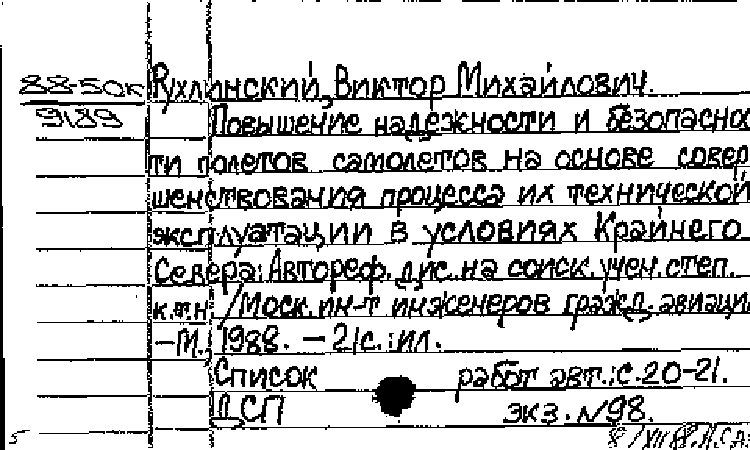 88-50к Рухлинский, Виктор Михайлович.
9189 Повышение надежности и безопаснос
ти полетов самолетов на основе совер
шенствования процесса их технической
эксплуатации в условиях Крайнего
Севера: Автореф. дис. на соиск. учен. степ.
к.т.н. /Моск. ин-т инженеров гражд. авиации
-М., 1988. - 21с.: ил.
Список работ авт.: с. 20-21.
ДСП экз. №98.
5